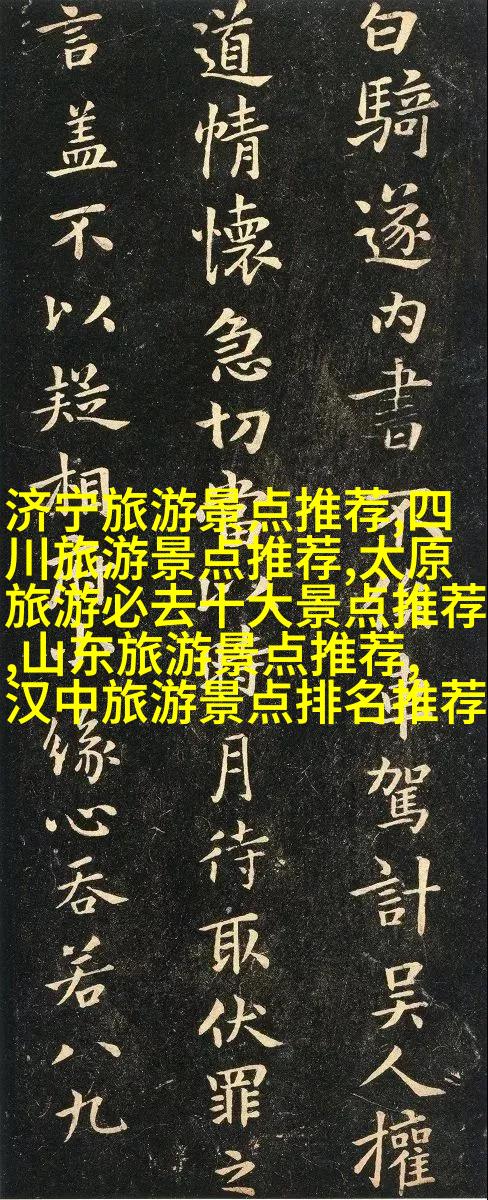 白騎遂内書不車駕計吳人權
道情懷急切當月待取伏罪之
言盖不以疑相緣心吞若八九
济宁旅游景点推荐,四
川旅游景点推荐,太原
旅游必去十大景点推荐
,山东旅游景点推荐,
汉中旅游景点排名推荐